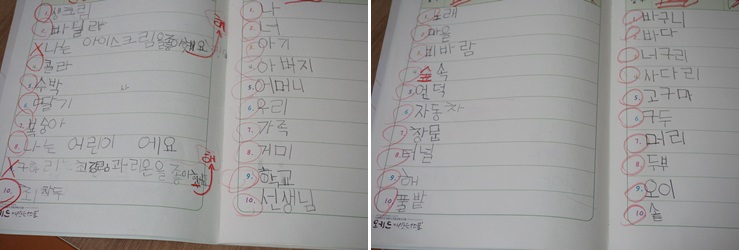 1. 생크림
2. 바닐라
나는 아이스크림을 좋아해요
해
4. 콜라
5. 수박
나
6. 딸기
7. 복숭아
8. 나는 어린이 에요
해
10.
1. 나
2. 너
3. 아기
4. 아버지
5. 어머니
6. 우리
7. 가족
8. 거미
9. 학교
10. 선생님
1. 노래
2. 마을
3. 비바람
4. 숲속
5. 언덕
6. 자동차
7. 창문
8. 터널
9. 해
10. 풀밭
1. 바구니
2. 바다
3. 너구리
4. 사다리
5. 고구마
6. 구두
7. 머리
8. 두부
9. 오이
10. 솔